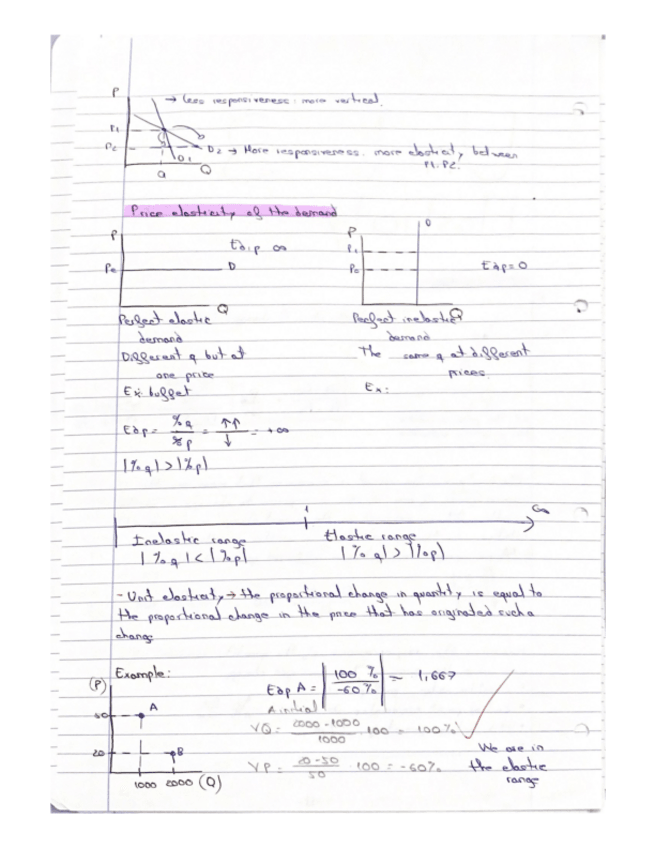 P
→ Less responsiveness: more vertical.
P1
P2
D2 → More responsiveness. more elasticity between
P1. P2.
D1
Q
Q
Price elasticity of the demand
P
Edip ∞
Po
D
Q
P
D
P1
Po
Edp = 0
Q
Perfect elastic
demand
Different q but at
one price
Ex: buffet
Perfect inelastic
demand
The same q at different
prices.
Ex:
Edp = %q / %p = ↑↑ / ↓ = +∞
|%q| > |%p|
1
∞
Inelastic range
|%q| < |%p|
Elastic range
|%q| > |%p|
- Unit elasticity → the proportional change in quantity is equal to
the proportional change in the price that has originated such a
change
Example:
(P)
50
A
20
B
1000 2000 (Q)
Edp A = |100 % / -60 %| = 1,667
A initial
VQ = 2000 - 1000 / 1000 · 100 = 100%
VP = 20 - 50 / 50 · 100 = -60%
We are in
the elastic
range